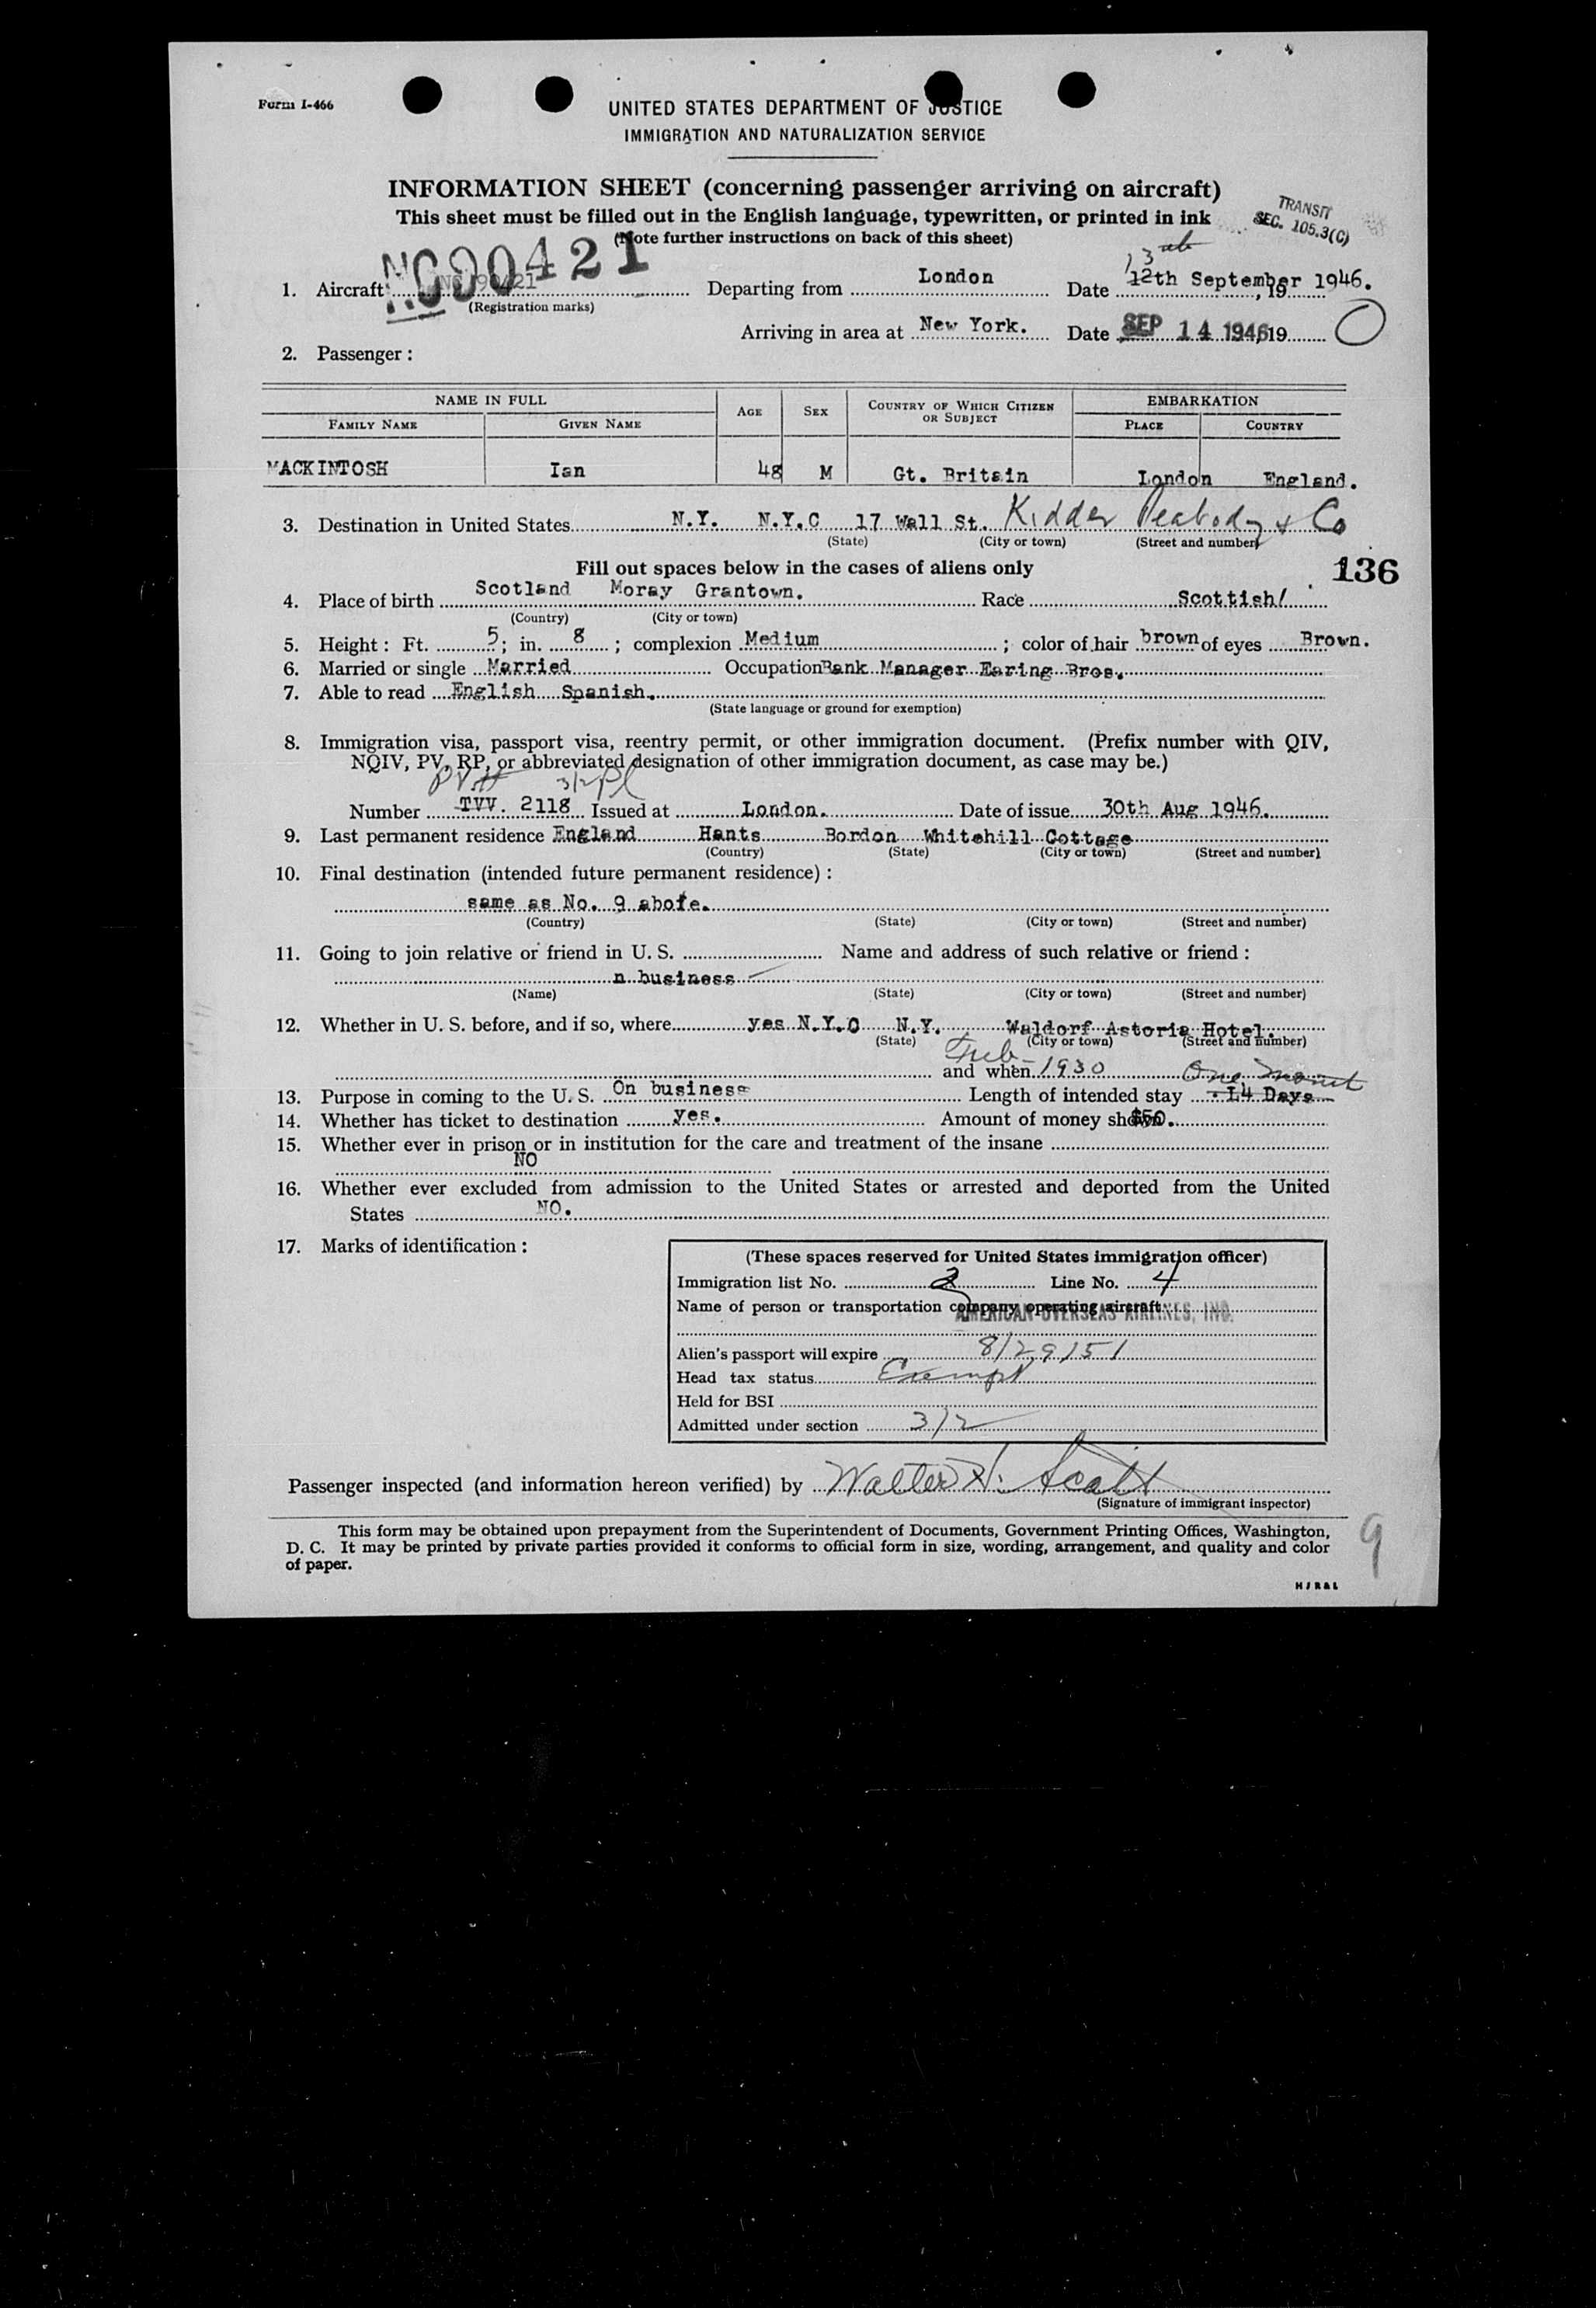 Form I-466
UNITED STATES DEPARTMENT OF JUSTICE
IMMIGRATION AND NATURALIZATION SERVICE
INFORMATION SHEET (concerning passenger arriving on aircraft)
This sheet must be filled out in the English language, typewritten, or printed in ink
TRANSIT
SEC. 105.3(C)
(Note further instructions on back of this sheet)
NC90421
13th
1. Aircraft NC 90421 Departing from London Date 12th September, 19 1946.
(Registration marks)
Arriving in area at New York. Date SEP 14 1946 19
2. Passenger:
NAME IN FULL AGE SEX COUNTRY OF WHICH CITIZEN OR SUBJECT EMBARKATION
FAMILY NAME GIVEN NAME PLACE COUNTRY
MACKINTOSH Ian 48 M Gt. Britain London England.
3. Destination in United States N.Y. N.Y.C 17 Wall St. Kidder Peabody & Co
(State) (City or town) (Street and number)
136
Fill out spaces below in the cases of aliens only
4. Place of birth Scotland Moray Grantown. Race Scottish/
(Country) (City or town)
5. Height: Ft. 5; in. 8; complexion Medium; color of hair brown of eyes Brown.
6. Married or single Married Occupation Bank Manager Earing Bros.
7. Able to read English Spanish.
(State language or ground for exemption)
8. Immigration visa, passport visa, reentry permit, or other immigration document. (Prefix number with QIV,
NQIV, PV, RP, or abbreviated designation of other immigration document, as case may be.)
3/2
Number TVV. 2118 Issued at London. Date of issue 30th Aug 1946.
9. Last permanent residence England Hants Bordon Whitehill Cottage
(Country) (State) (City or town) (Street and number)
10. Final destination (intended future permanent residence):
same as No. 9 abofe.
(Country) (State) (City or town) (Street and number)
11. Going to join relative or friend in U. S. Name and address of such relative or friend:
n business
(Name) (State) (City or town) (Street and number)
12. Whether in U. S. before, and if so, where yes N.Y.C N.Y. Waldorf Astoria Hotel.
(State) (City or town) (Street and number)
Feb
and when 1930
One month
13. Purpose in coming to the U. S. On business Length of intended stay 14 Days
14. Whether has ticket to destination yes. Amount of money shown $50.
15. Whether ever in prison or in institution for the care and treatment of the insane
NO
16. Whether ever excluded from admission to the United States or arrested and deported from the United
States NO.
17. Marks of identification:
(These spaces reserved for United States immigration officer)
Immigration list No. 2 Line No. 4
Name of person or transportation company operating aircraft
AMERICAN OVERSEAS AIRLINES, INC.
Alien's passport will expire 8/29/51
Head tax status Exempt
Held for BSI
Admitted under section 3/2
Passenger inspected (and information hereon verified) by Walter N. Scott
(Signature of immigrant inspector)
This form may be obtained upon prepayment from the Superintendent of Documents, Government Printing Offices, Washington,
D. C. It may be printed by private parties provided it conforms to official form in size, wording, arrangement, and quality and color
of paper.
9
H J R & L